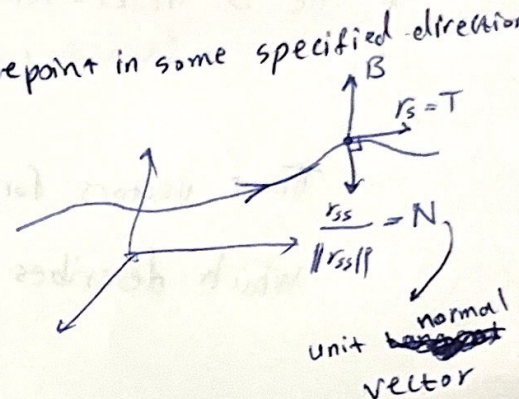 epoint in some specified direction
B
r_s = T
r_ss / ||r_ss|| = N,
normal
unit
vector